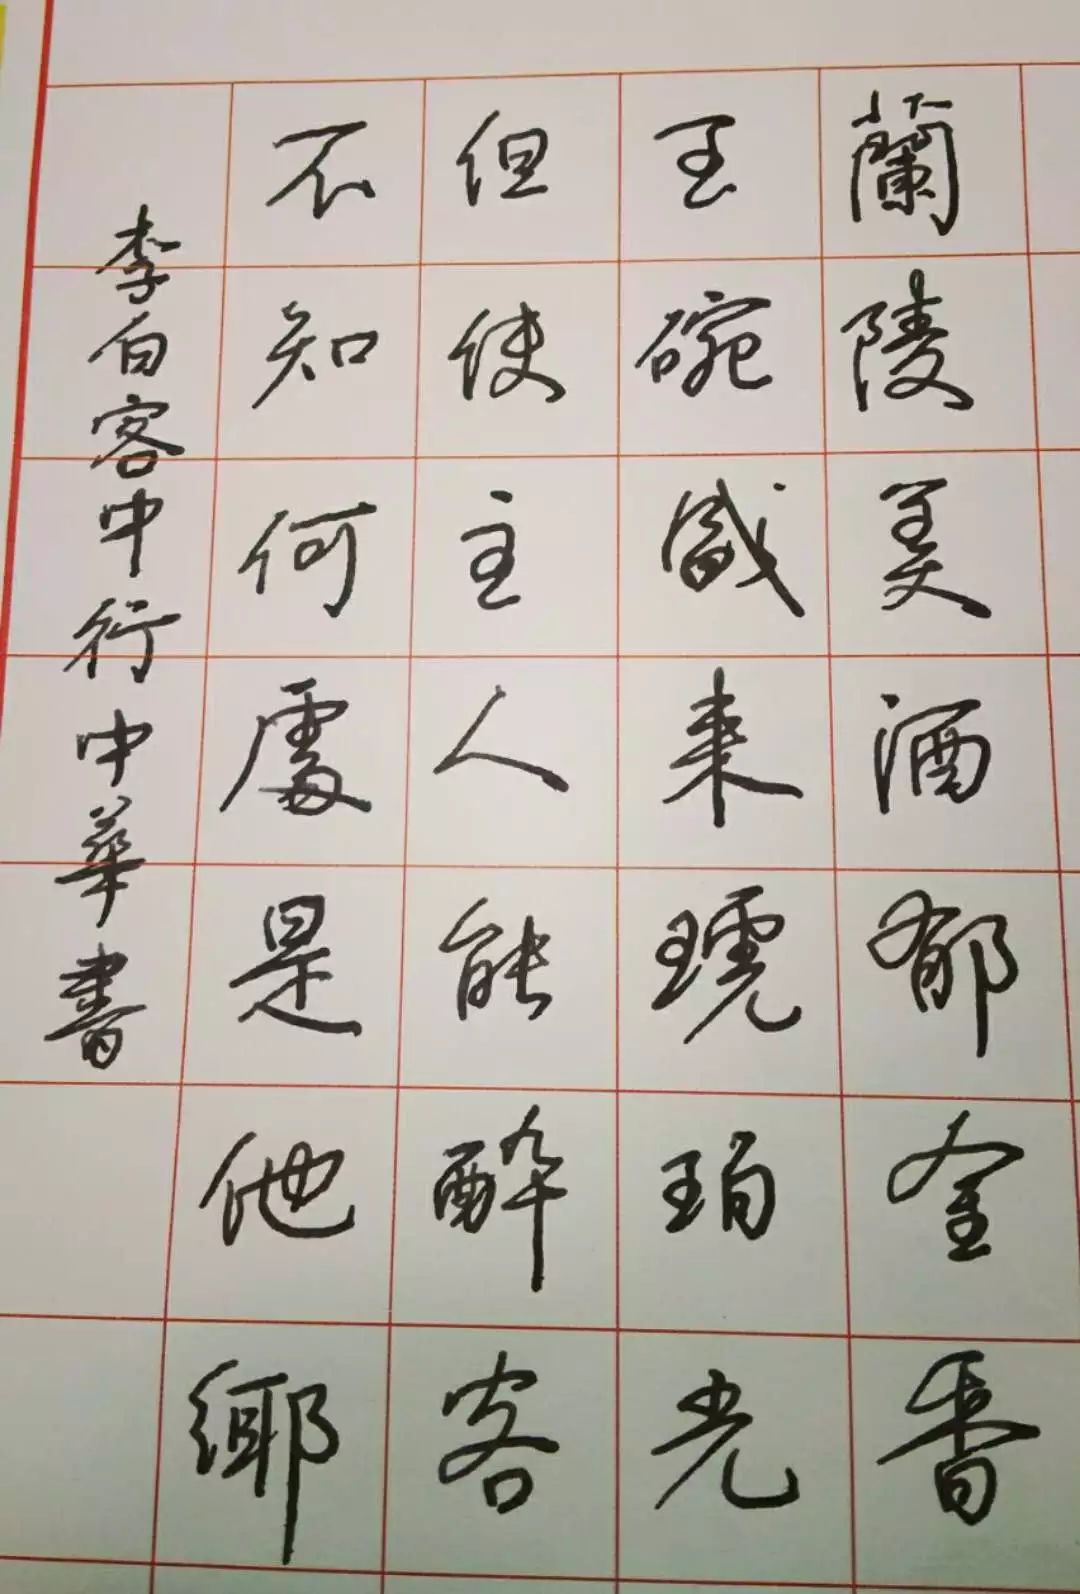 蘭陵美酒郁金香
玉碗盛来琥珀光
但使主人能醉客
不知何處是他鄉
李白客中行中華書